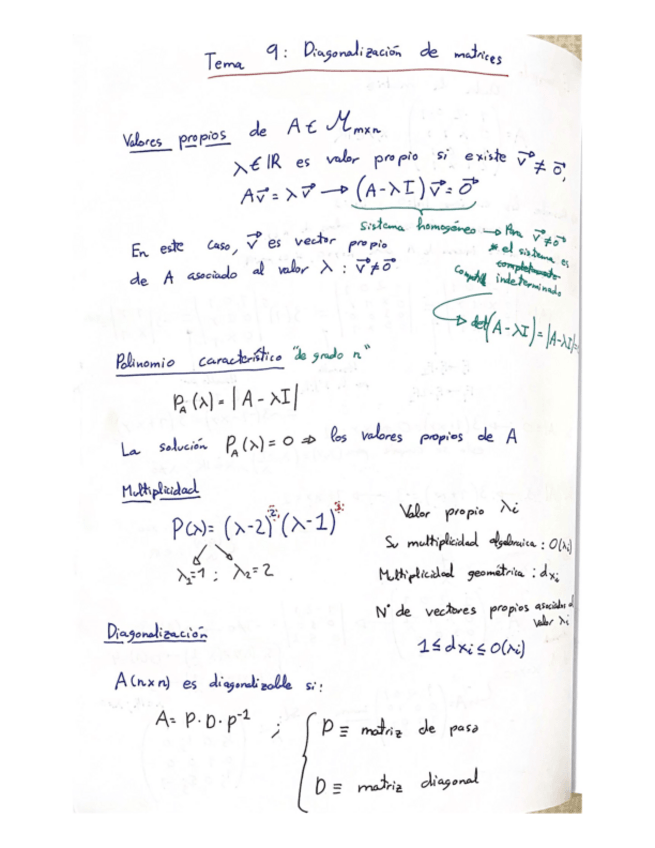 Tema 9: Diagonalización de matrices
Valores propios de A ∈ M mxn
λ ∈ IR es valor propio si existe v⃗ ≠ 0⃗,
Av⃗ = λv⃗ → (A-λI)v⃗ = 0⃗
sistema homogéneo → Para v⃗≠0⃗
* el sistema es
indeterminado
det(A-λI) = |A-λI| =
En este caso, v⃗ es vector propio
de A asociado al valor λ : v⃗≠0⃗
Polinomio característico "de grado n"
P_A(λ) = |A - λI|
La solución P_A(λ) = 0 ⇒ los valores propios de A
Multiplicidad
P(λ) = (λ-2)^2 (λ-1)
λ₁=1 ; λ₂=2
Valor propio λi
Su multiplicidad algebraica : O(λi)
Multiplicidad geométrica : dλi
Nº de vectores propios asociados al
valor λi
1 ≤ dλi ≤ O(λi)
Diagonalización
A(nxn) es diagonalizable si:
A = P·D·P⁻¹ ;
P ≡ matriz de paso
D ≡ matriz diagonal